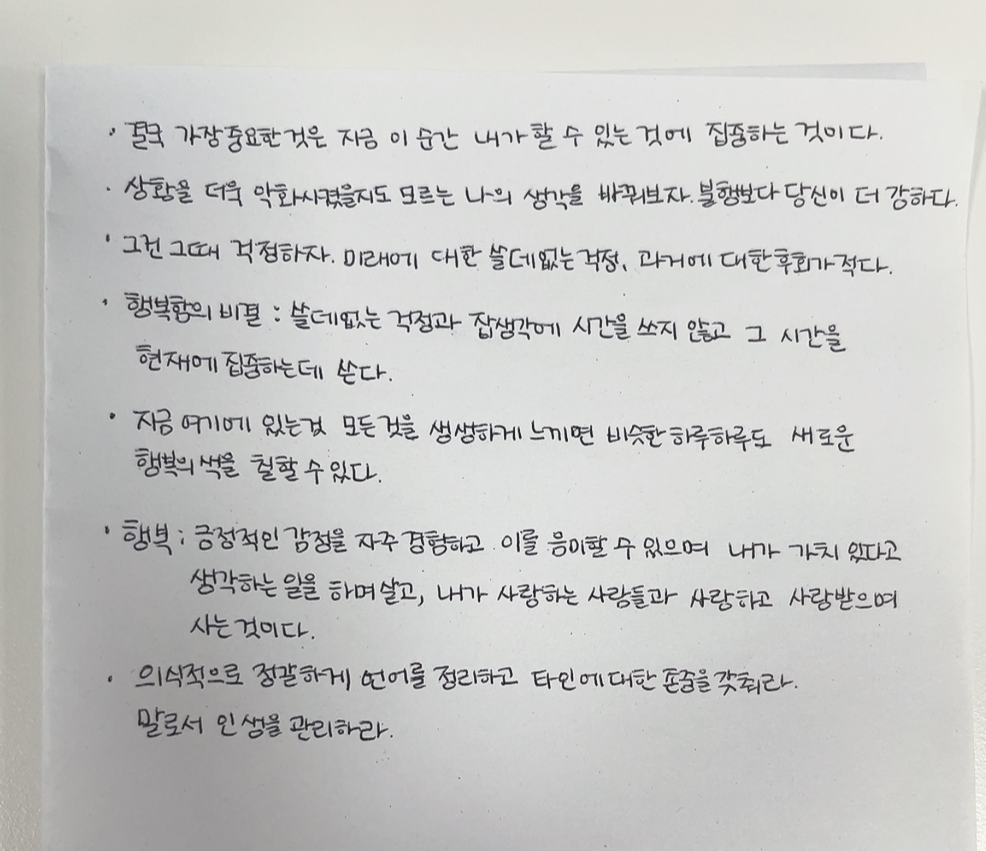 · 결국 가장 중요한 것은 지금 이 순간 내가 할 수 있는 것에 집중하는 것이다.
· 상황을 더욱 악화시켰을지도 모르는 나의 생각을 바꿔보자. 불행보다 당신이 더 강하다.
· 그건 그때 걱정하자. 미래에 대한 쓸데없는 걱정, 과거에 대한 후회가 적다.
· 행복함의 비결 : 쓸데없는 걱정과 잡생각에 시간을 쓰지 않고 그 시간을
현재에 집중하는데 쓴다.
· 지금 여기에 있는것 모든것을 생생하게 느끼면 비슷한 하루하루도 새로운
행복의 색을 칠할 수 있다.
· 행복 : 긍정적인 감정을 자주 경험하고 이를 음미할 수 있으며 내가 가치 있다고
생각하는 일을 하며 살고, 내가 사랑하는 사람들과 사랑하고 사랑받으며
사는 것이다.
· 의식적으로 정갈하게 언어를 정리하고 타인에 대한 존중을 갖춰라.
말로서 인생을 관리하라.